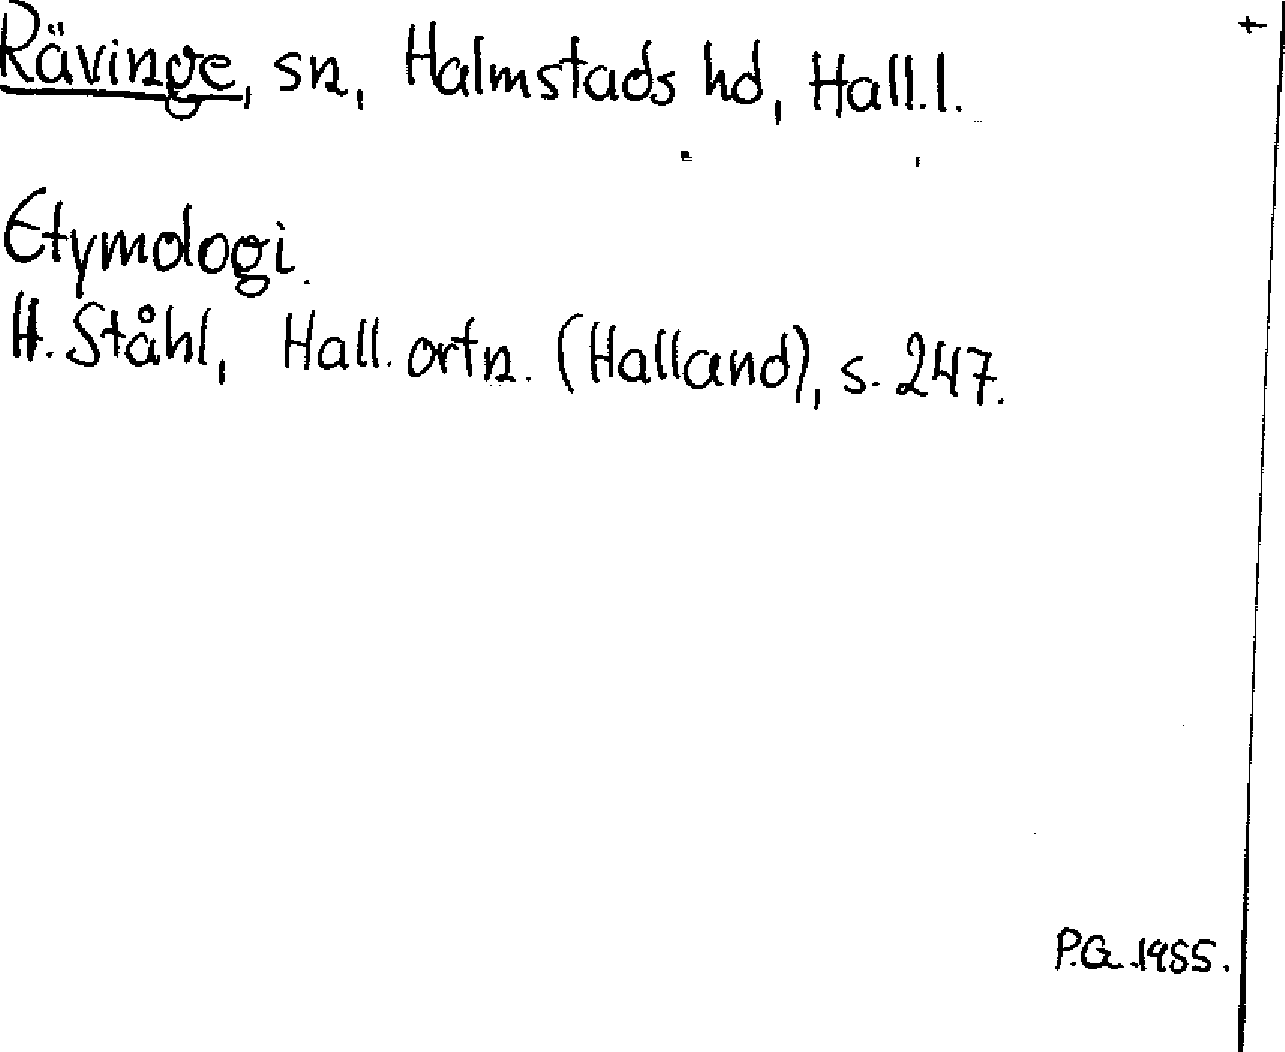 Rävinge, sn, Halmstads hd, Hall. l. +
Etymologi.
H. Ståhl, Hall. ortn. (Halland), s. 247.
P.G. 1955.